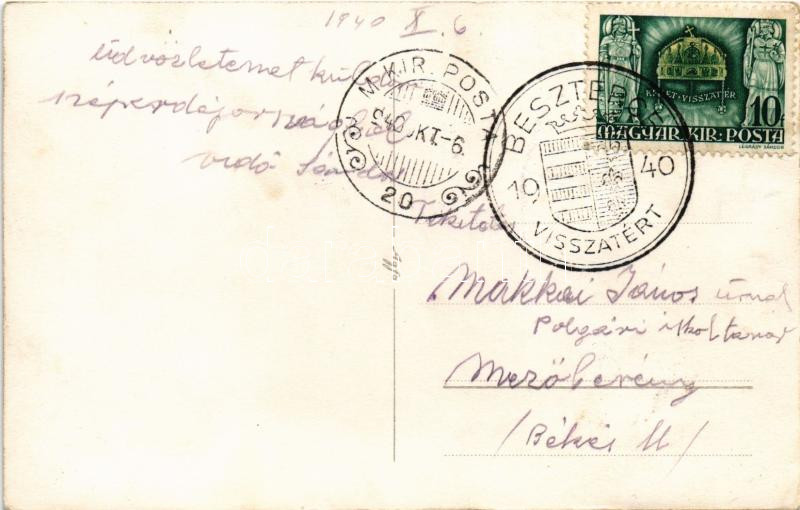 1940 X. 6.
Üdvözletemet küldi
szép erdélyországból
Vidó Sándor
M. KIR. POSTA
940 OKT-6
20
BESZTERCE
19 40
VISSZATÉRT
KELET·VISSZATÉR
10
MAGYAR·KIR·POSTA
LÉGRÁDY SÁNDOR
Tekintetes
Makkai János úrnak
Polgári iskoltanár
Mezőberény
/Békés M/